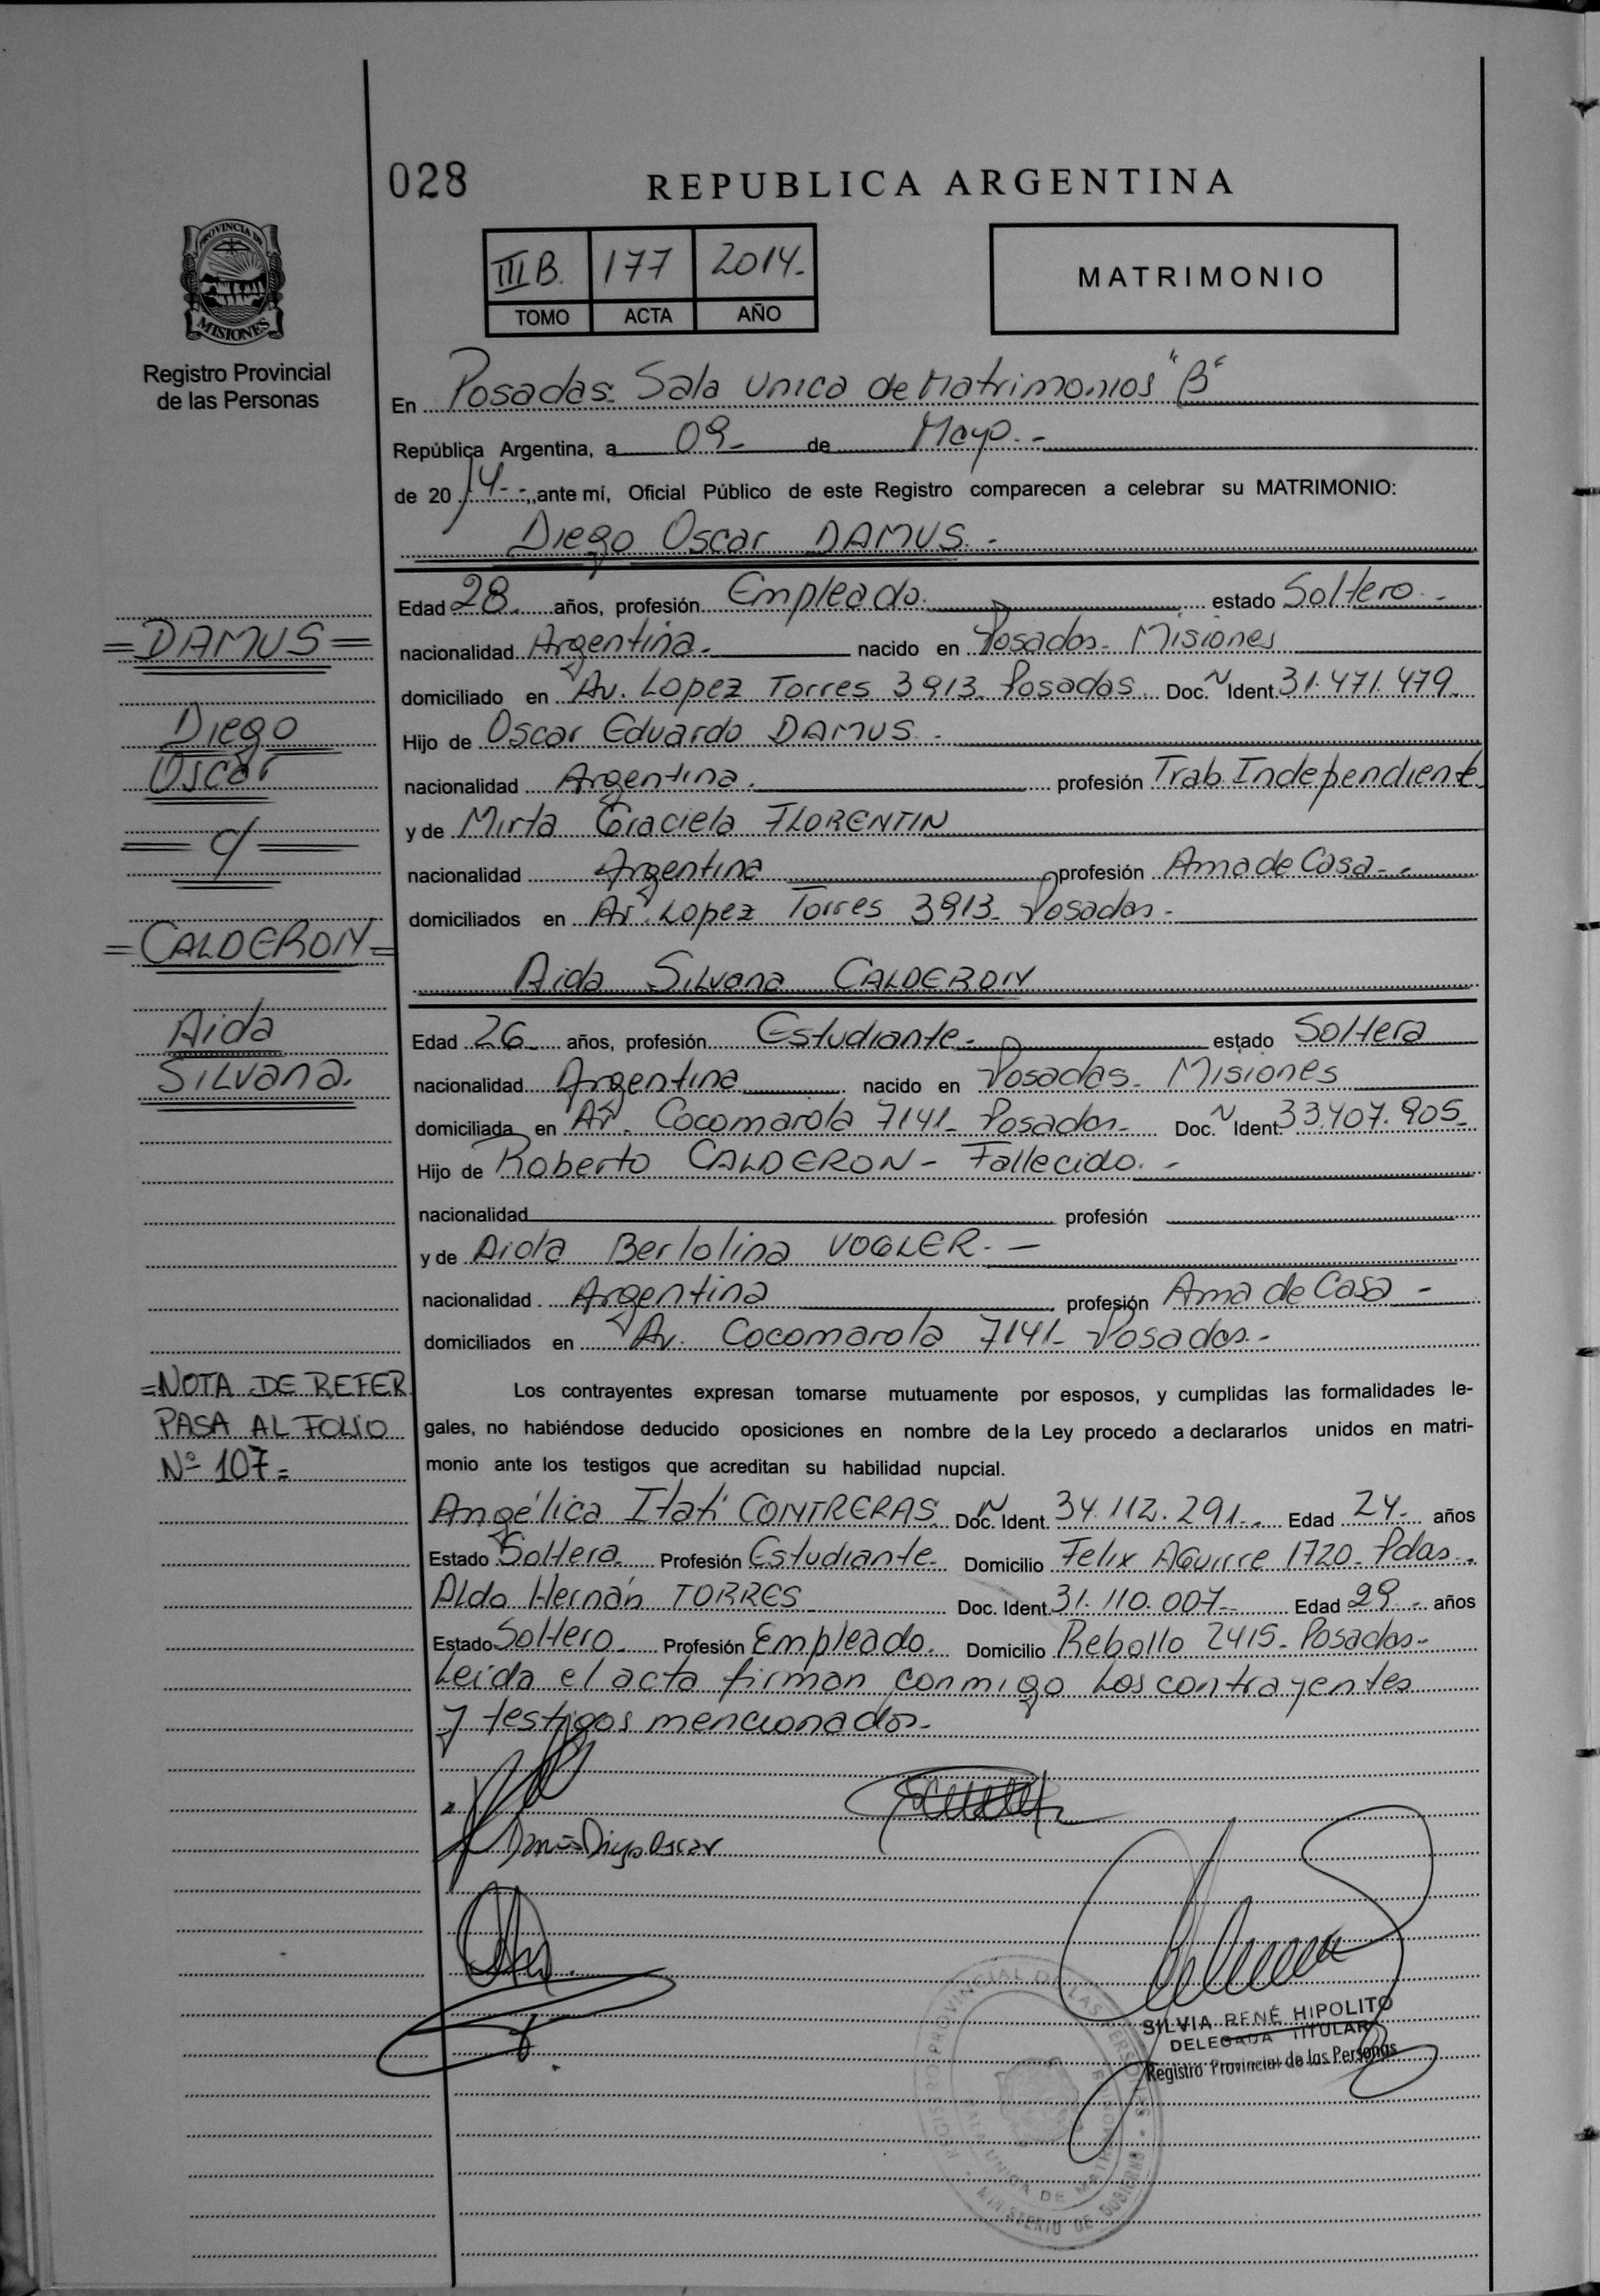 028
REPUBLICA ARGENTINA
PROVINCIA DE
MISIONES
Registro Provincial
de las Personas
III B. 177 2014.-
TOMO ACTA AÑO
MATRIMONIO
En Posadas- Sala Unica de Matrimonios "B"
República Argentina, a 09- de Mayo.-
de 2014.-, ante mí, Oficial Público de este Registro comparecen a celebrar su MATRIMONIO:
Diego Oscar DAMUS.-
Edad 28. años, profesión Empleado. estado Soltero.-
nacionalidad Argentina.- nacido en Posadas- Misiones
domiciliado en Av. Lopez Torres 3913- Posadas Doc. N Ident. 31.471.479.
Hijo de Oscar Eduardo DAMUS.-
nacionalidad Argentina. profesión Trab. Independiente
y de Mirta Graciela FLORENTIN
nacionalidad Argentina profesión Ama de Casa-.
domiciliados en Av. Lopez Torres 3913- Posadas-
Aida Silvana CALDERON
Edad 26- años, profesión Estudiante- estado Soltera
nacionalidad Argentina nacido en Posadas- Misiones
domiciliada en Av. Cocomarola 7141- Posadas- Doc. N Ident. 33.407.905-
Hijo de Roberto CALDERON- Fallecido.-
nacionalidad profesión
y de Aida Bertolina VOGLER.-
nacionalidad Argentina profesión Ama de Casa-
domiciliados en Av. Cocomarola 7141- Posadas.-
Los contrayentes expresan tomarse mutuamente por esposos, y cumplidas las formalidades le-
gales, no habiéndose deducido oposiciones en nombre de la Ley procedo a declararlos unidos en matri-
monio ante los testigos que acreditan su habilidad nupcial.
Angélica Itatí CONTRERAS. Doc. N Ident. 34.112.291.- Edad 24- años
Estado Soltera. Profesión Estudiante- Domicilio Felix Aguirre 1720- Pdas-.
Aldo Hernán TORRES Doc. Ident. 31.110.007- Edad 29- años
Estado Soltero- Profesión Empleado. Domicilio Rebollo 2415- Posadas-
Leida el acta firman conmigo Los contrayentes
y testigos mencionados-
Damus Diego Oscar
SILVIA RENÉ HIPOLITO
DELEGADA TITULAR
Registro Provincial de las Personas
REGISTRO PROVINCIAL DE LAS PERSONAS
SALA UNICA DE MATRIMONIOS
MINISTERIO DE GOBIERNO
=DAMUS=
Diego
Oscar
c/
=CALDERON=
Aida
Silvana.
=NOTA DE REFER
PASA AL FOLIO
Nº 107=